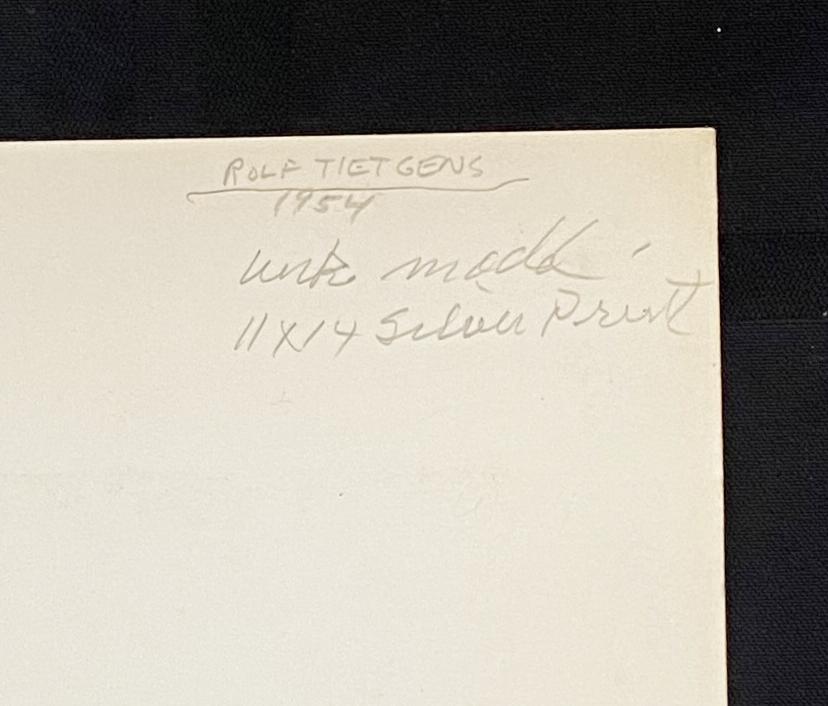 ROLF TIETGENS
1954
unk model
11X14 Silver Print